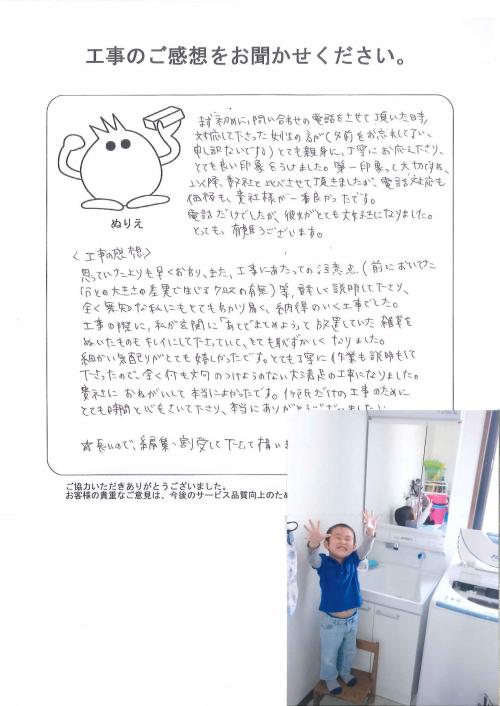 工事のご感想をお聞かせください。
まず初めに、問い合わせの電話をさせて頂いた時、
対応して下さった女性の方が(名前をお忘れしてしまい、
申し訳ないです)とても親身に、丁寧にお応え下さり、
とても良い印象をうけました。第一印象って大切ですね。
以後、数社と比べさせて頂きましたが、電話対応も
価格も、貴社様が一番良かったです。
電話だけでしたが、彼女がとても大好きになりました。
とっても、有難うございます。
ぬりえ
〈工事の感想〉
思っていたよりも早くおわり、また、工事にあたっての注意点(前においてた
分との大きさの差異で生じるクロスの有無)等、詳しく説明して下さり、
全く無知な私にもとてもわかり易く、納得のいく工事でした。
工事の際に、私が玄関に「あとでまとめよう」って放置していた雑草を
ぬいたものもキレイにして下さっていて、とても恥ずかしくなりました。
細かい気配りがとても嬉しかったです。とても丁寧に作業も説明もして
下さったので、全く何も文句のつけようのない大満足の工事になりました。
貴社に おねがいして本当によかったです。1ヶ所だけの工事のために
とても時間と心をさいて下さり、本当にありがとうございました
☆長いので、編集・割愛して下さって構いま
ご協力いただきありがとうございました。
お客様の貴重なご意見は、今後のサービス品質向上のため